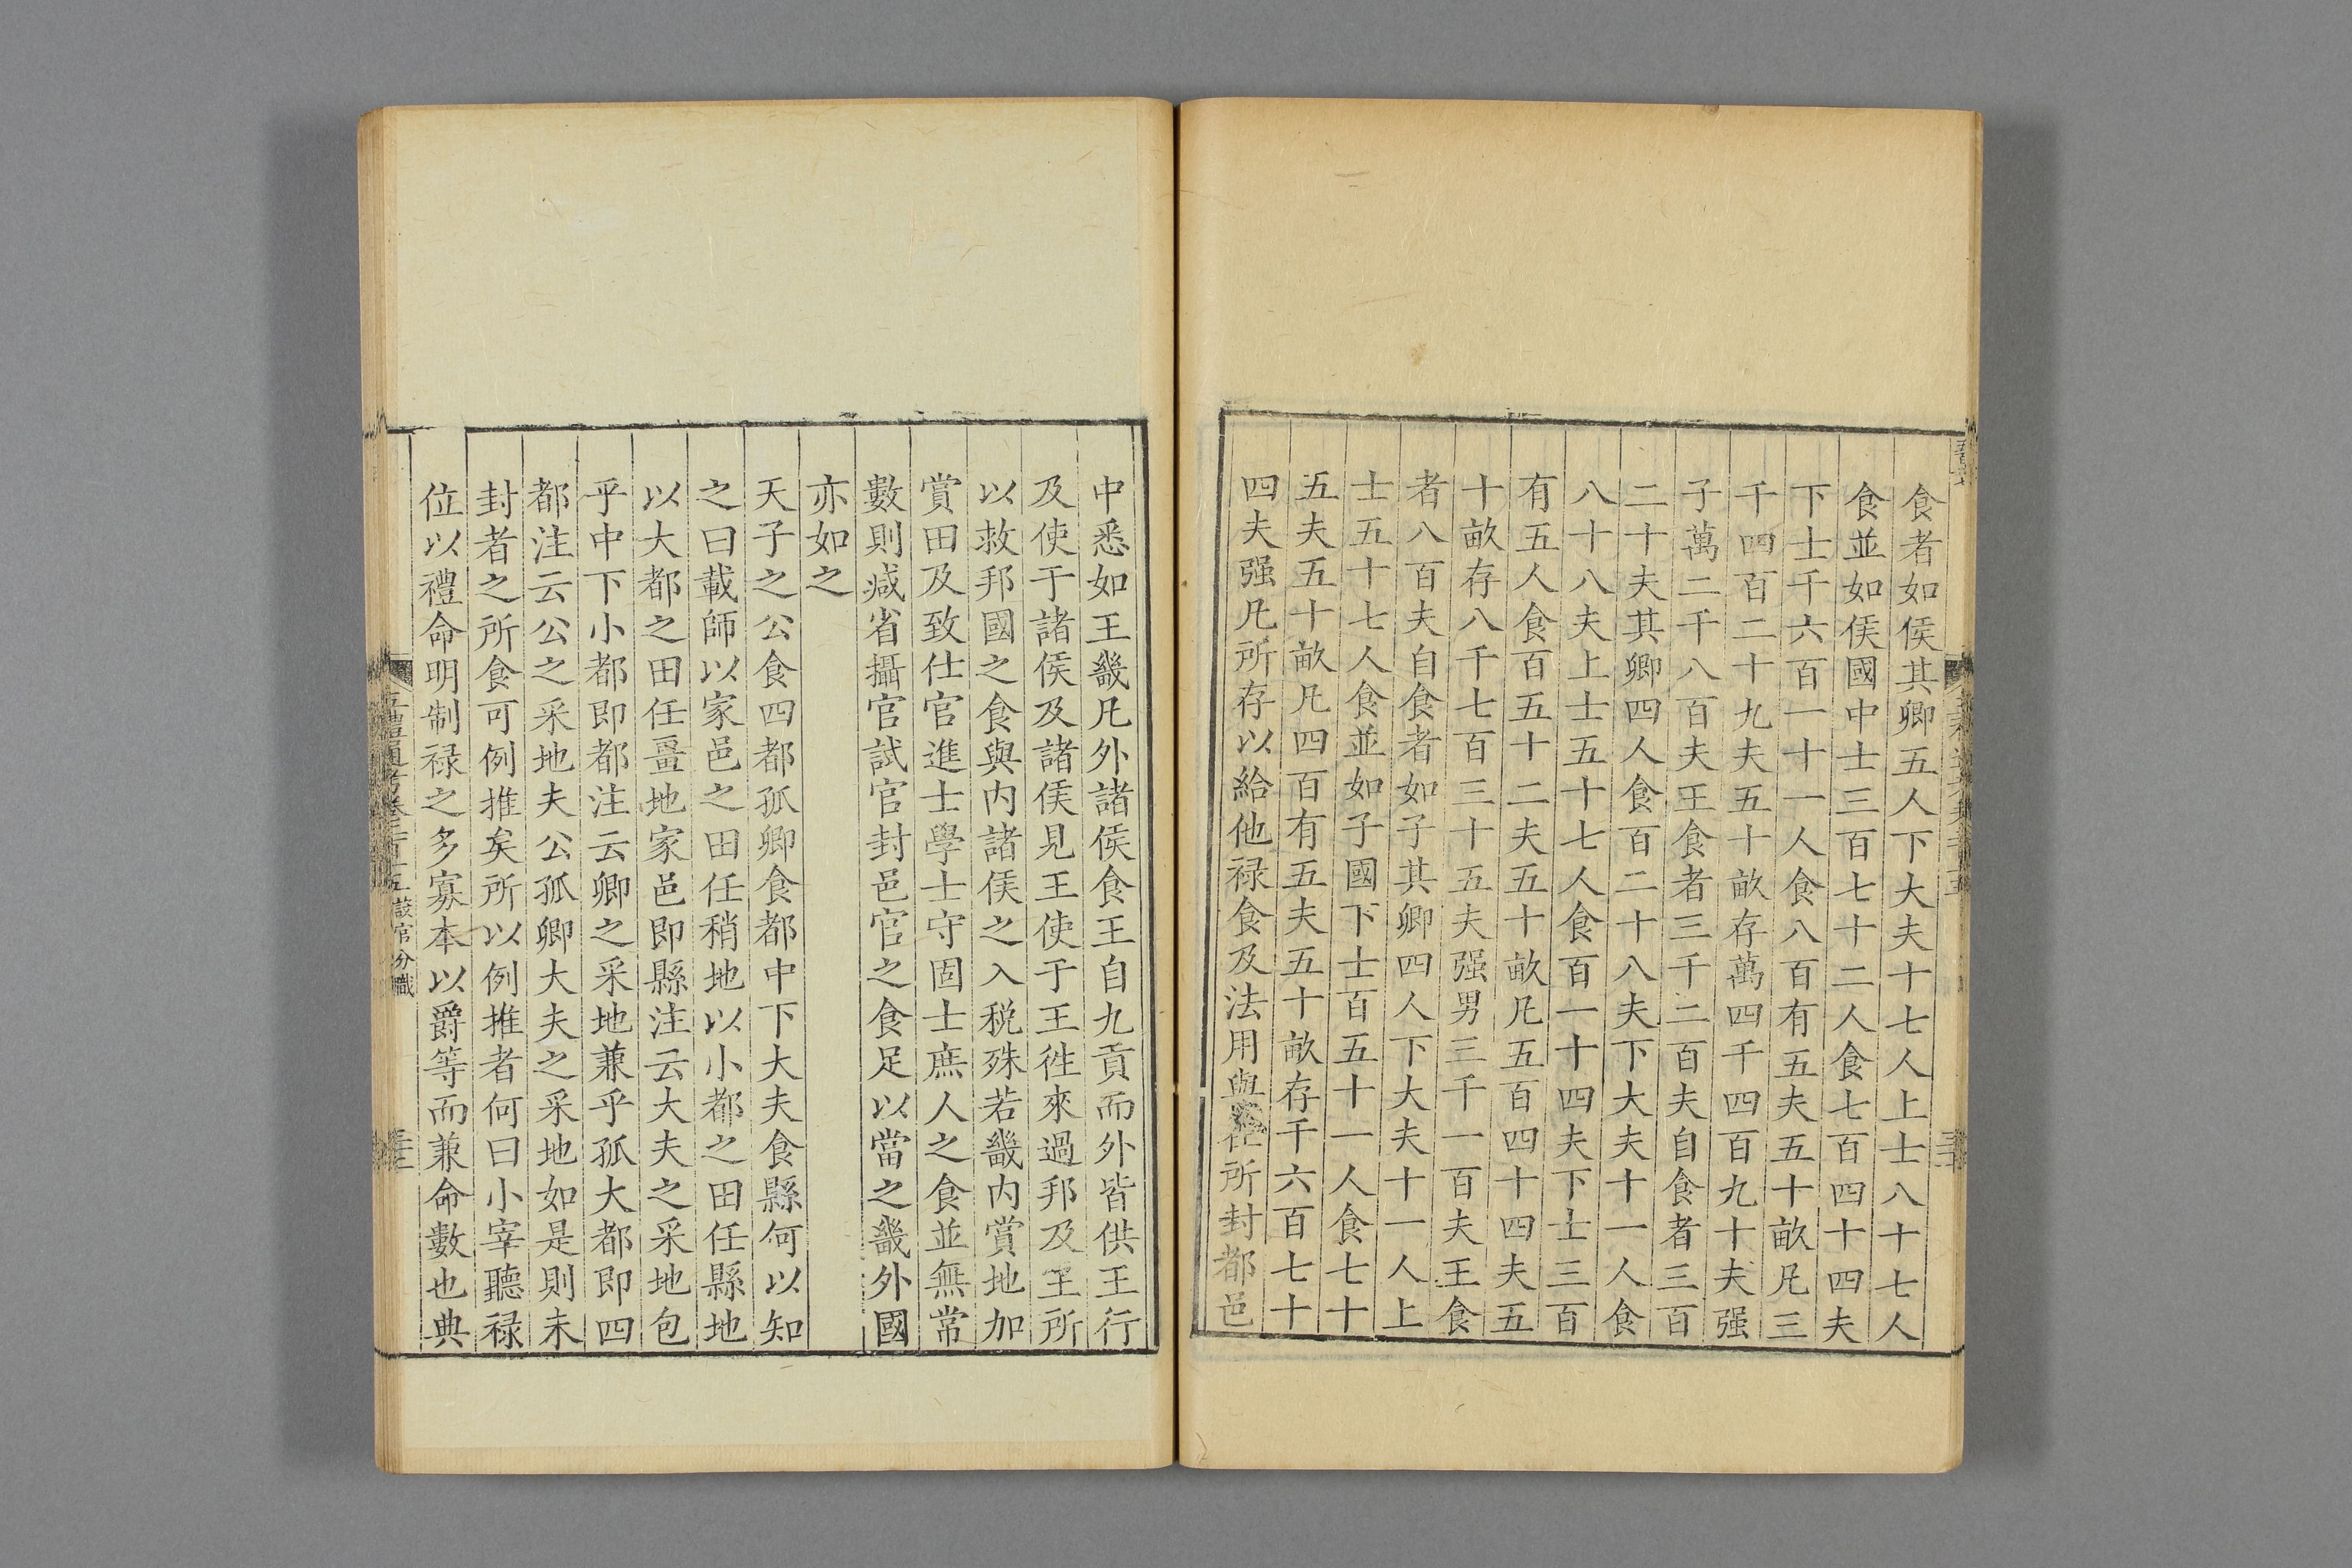 食者如侯其卿五人下大夫十七人上士八十七人
食並如侯國中士三百七十二人食七百四十四夫
下士千六百一十一人食八百有五夫五十畝凡三
千四百二十九夫五十畝存萬四千四百九十夫强
子萬二千八百夫王食者三千二百夫自食者三百
二十夫其卿四人食百二十八夫下大夫十一人食
八十八夫上士五十七人食百一十四夫下士三百
有五人食百五十二夫五十畝凡五百四十四夫五
十畝存八千七百三十五夫强男三千一百夫王食
者八百夫自食者如子其卿四人下大夫十一人上
士五十七人食並如子國下士百五十一人食七十
五夫五十畝凡四百有五夫五十畝存千六百七十
四夫强凡所存以給他禄食及法用與 所封都邑
中悉如王畿凡外諸侯食王自九貢而外皆供王行
及使于諸侯及諸侯見王使于王徃來過邦及王所
以救邦國之食與内諸侯之入税殊若畿内賞地加
賞田及致仕官進士學士守固士庶人之食並無常
數則减省攝官試官封邑官之食足以當之畿外國
亦如之
天子之公食四都孤卿食都中下大夫食縣何以知
之曰載師以家邑之田任稍地以小都之田任縣地
以大都之田任畺地家邑即縣注云大夫之采地包
乎中下小都即都注云卿之采地兼乎孤大都即四
都注云公之采地夫公孤卿大夫之采地如是則未
封者之所食可例推矣所以例推者何曰小宰聽禄
位以禮命明制禄之多寡本以爵等而兼命數也典
五禮通考卷二百十五 設官分職